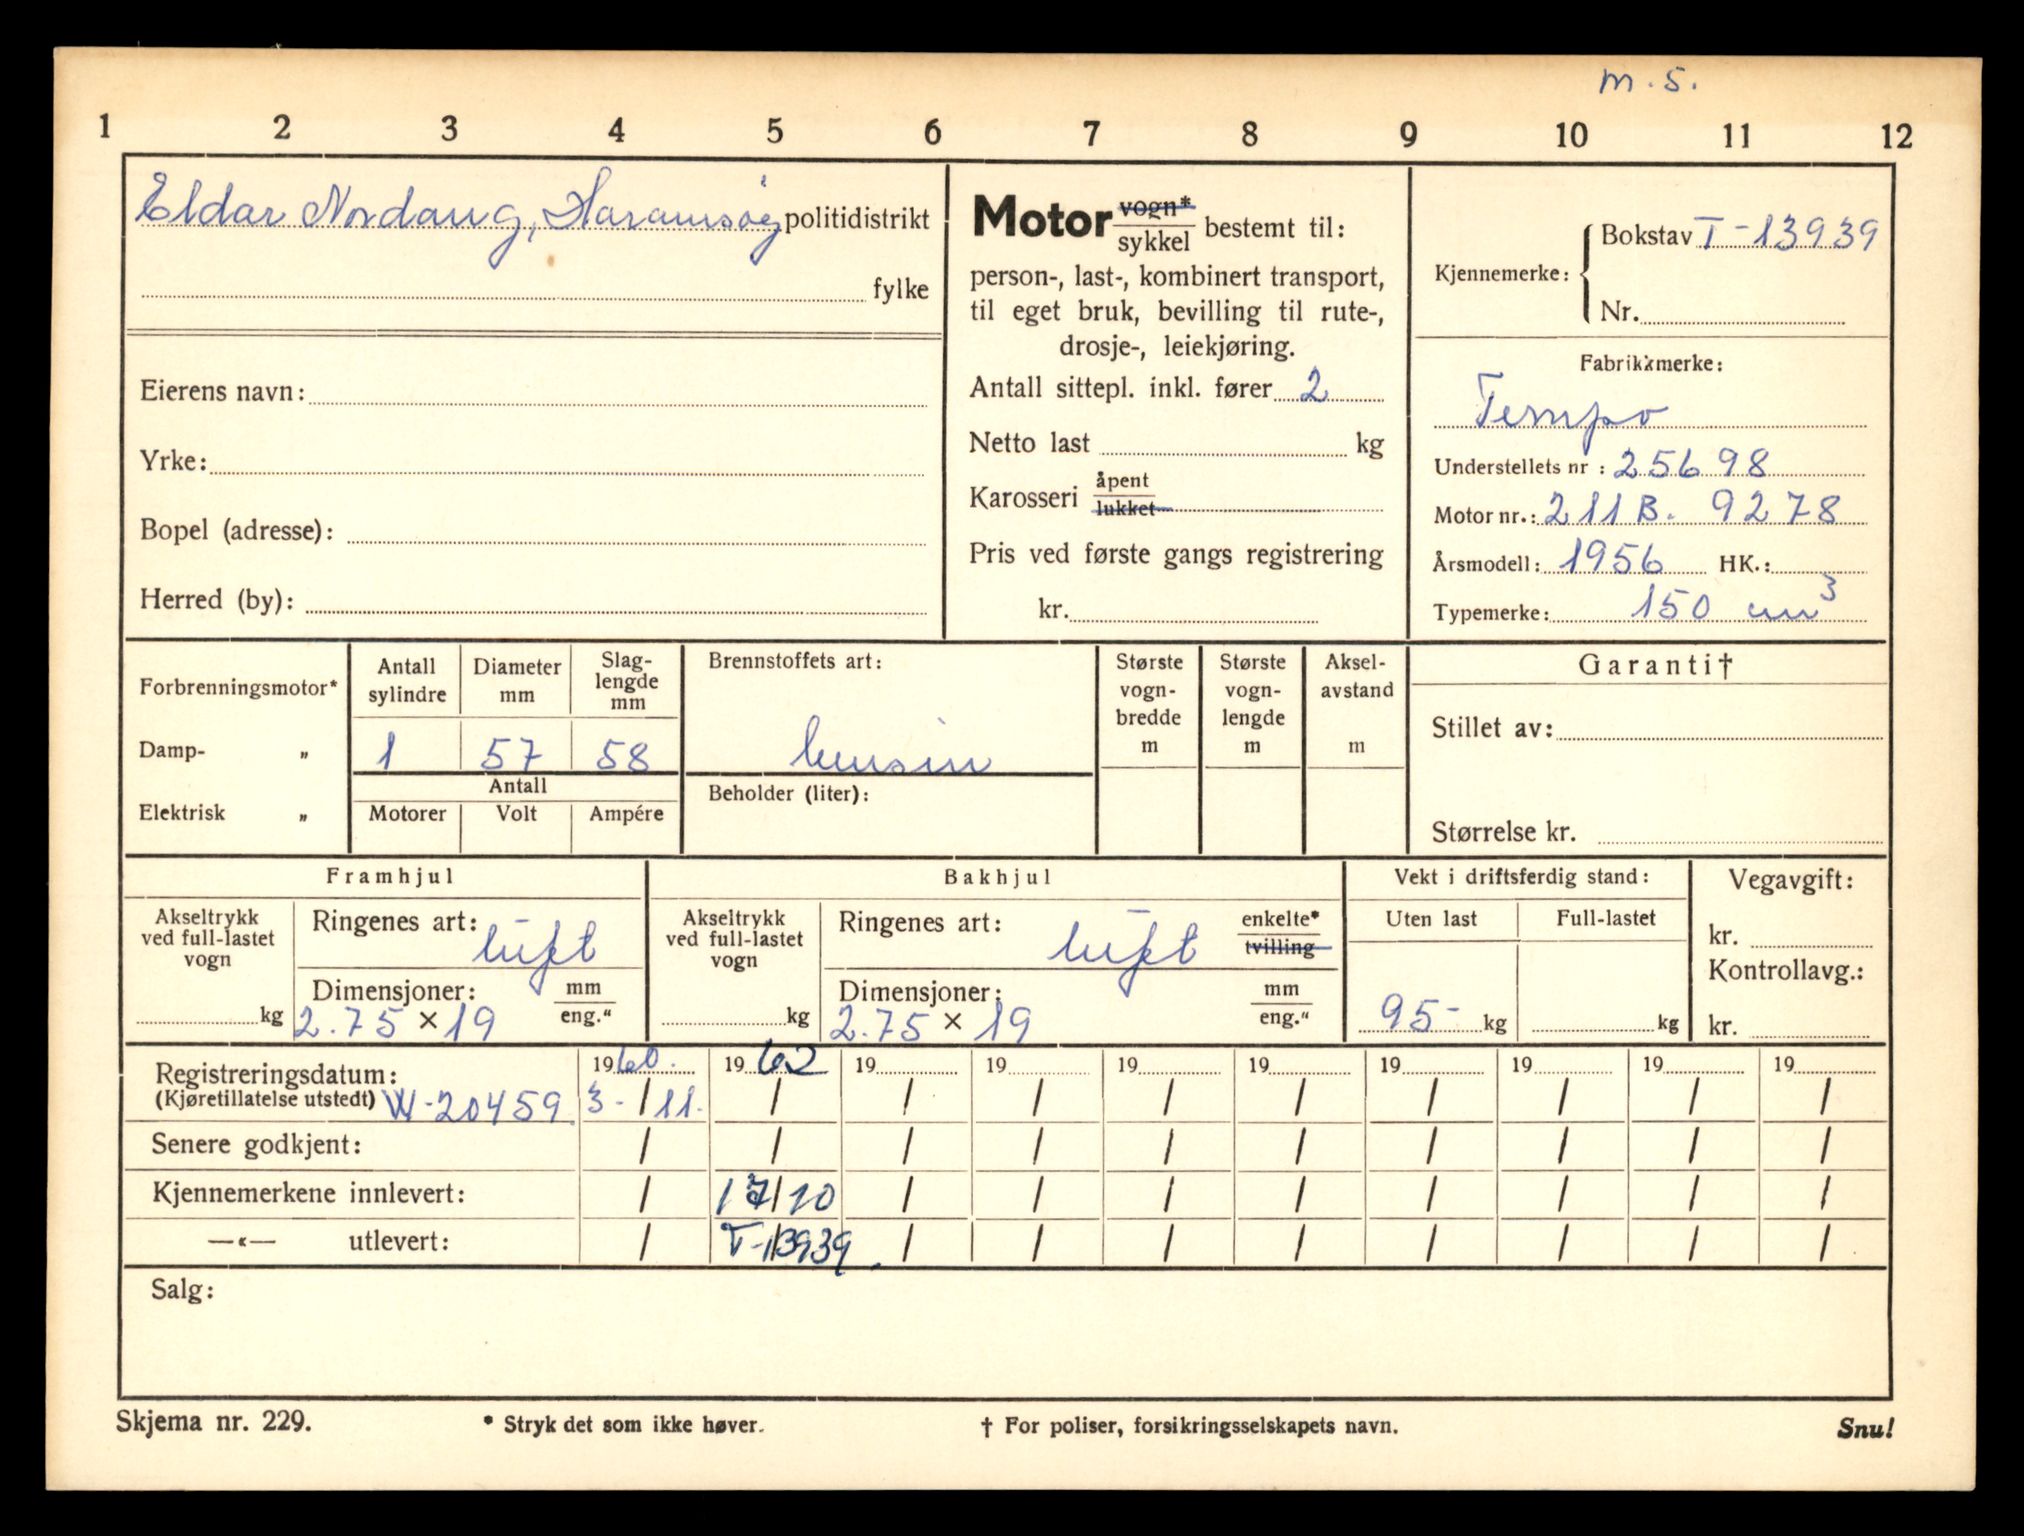 m.s.
1 2 3 4 5 6 7 8 9 10 11 12
Eldar Nordang, Haramsøy politidistrikt
fylke
Eierens navn:
Yrke:
Bopel (adresse):
Herred (by):
Motor vogn* / sykkel bestemt til:
person-, last-, kombinert transport,
til eget bruk, bevilling til rute-,
drosje-, leiekjøring.
Antall sittepl. inkl. fører 2
Netto last kg
Karosseri åpent / lukket
Pris ved første gangs registrering
kr.
Kjennemerke: Bokstav T-13939
Nr.
Fabrikkmerke:
Tempo
Understellets nr : 25698
Motor nr.: 211B. 9278
Årsmodell: 1956 HK.:
Typemerke: 150 cm³
Forbrenningsmotor*
Damp- „
Elektrisk „
Antall sylindre
Diameter mm
Slag-lengde mm
1 57 58
Antall
Motorer Volt Ampére
Brennstoffets art:
bensin
Beholder (liter):
Største vogn-bredde m
Største vogn-lengde m
Aksel-avstand m
Garanti†
Stillet av:
Størrelse kr.
Framhjul
Akseltrykk ved full-lastet vogn
kg
Ringenes art: luft
Dimensjoner: mm / eng."
2.75 × 19
Bakhjul
Akseltrykk ved full-lastet vogn
kg
Ringenes art: luft enkelte* / tvilling
Dimensjoner: mm / eng."
2.75 × 19
Vekt i driftsferdig stand:
Uten last Full-lastet
95- kg kg
Vegavgift:
kr.
Kontrollavg.:
kr.
Registreringsdatum: 1960. 1962 19 19 19 19 19 19 19 19
(Kjøretillatelse utstedt) W-20459. 3-/11. / / / / / / / / /
Senere godkjent: / / / / / / / / / /
Kjennemerkene innlevert: / 17/10 / / / / / / / /
—«— utlevert: / T-13939. / / / / / / / /
Salg:
Skjema nr. 229. * Stryk det som ikke høver. † For poliser, forsikringsselskapets navn. Snu!